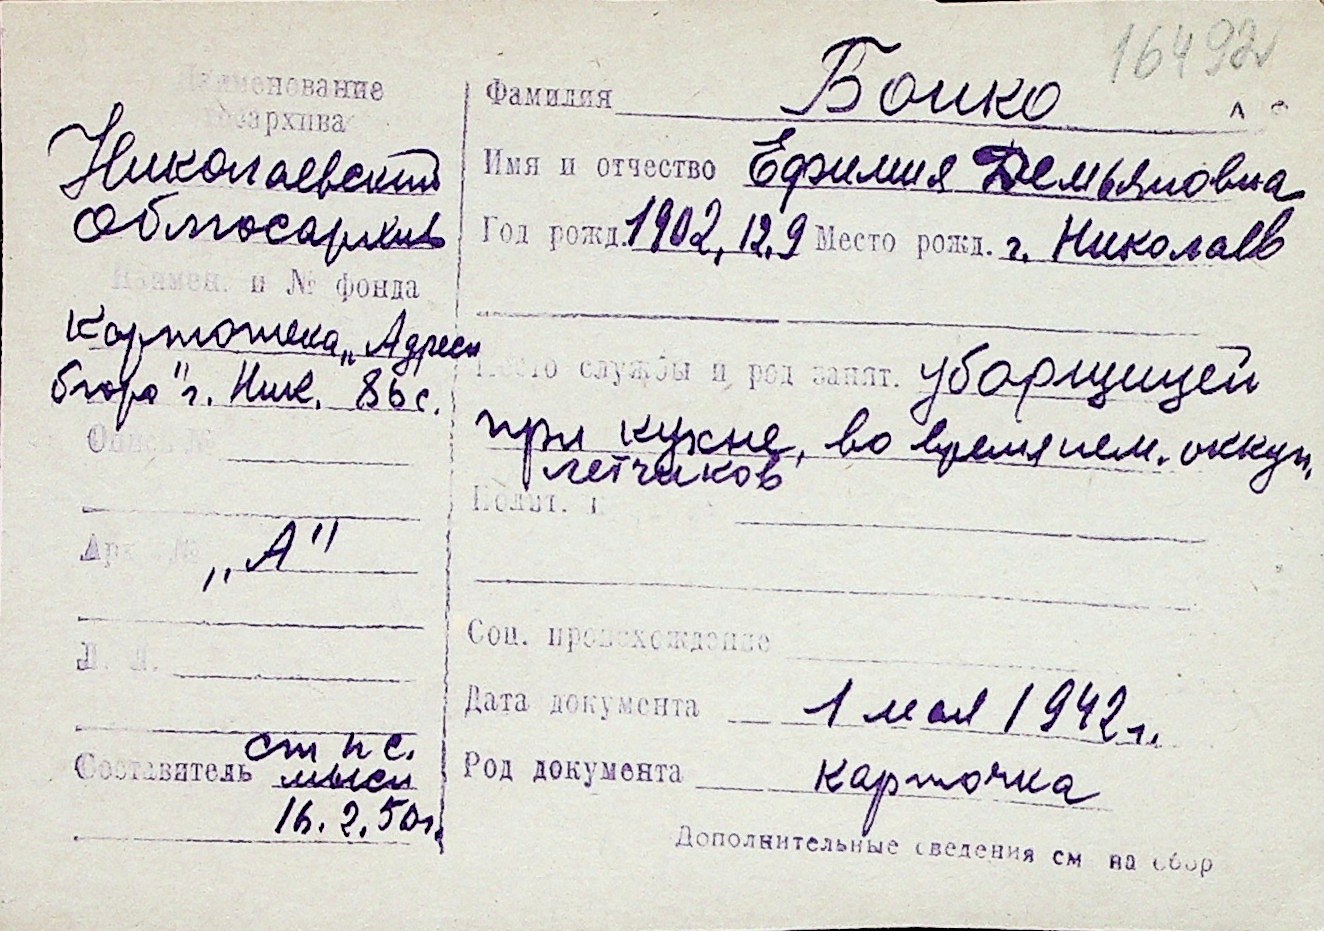 16492
Наименование
госархива
Николаевский
облгосархив
Наимен. и № фонда
картотека „Адресн
бюро" г. Ник. 86 с.
Опись №
Арх. №
„А"
Л. Л.
Составитель ст н с.
16. 2. 50 г.
Фамилия Бойко
Имя и отчество Ефимия Демьяновна
Год рожд. 1902, 12, 9 Место рожд. г. Николаев
Место службы и род занят. уборщицей
при кухне, во время нем. оккуп.
летчиков
Полит.
Соц. происхождение
Дата документа 1 мая 1942 г.
Род документа карточка
Дополнительные сведения см на обор